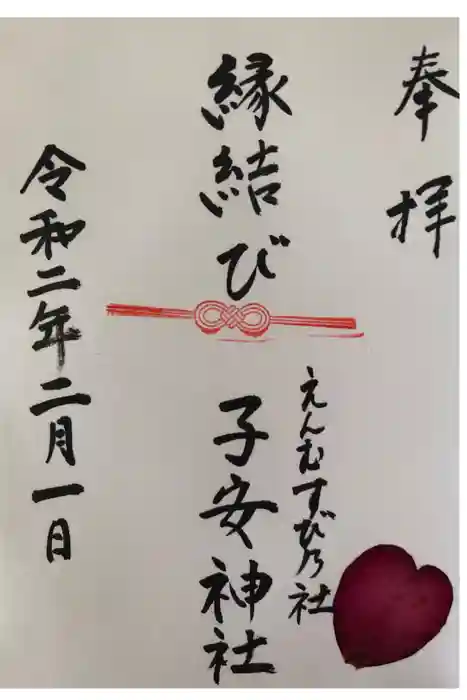 奉拝
えんむすび乃社
縁結び
子安神社
令和二年二月一日